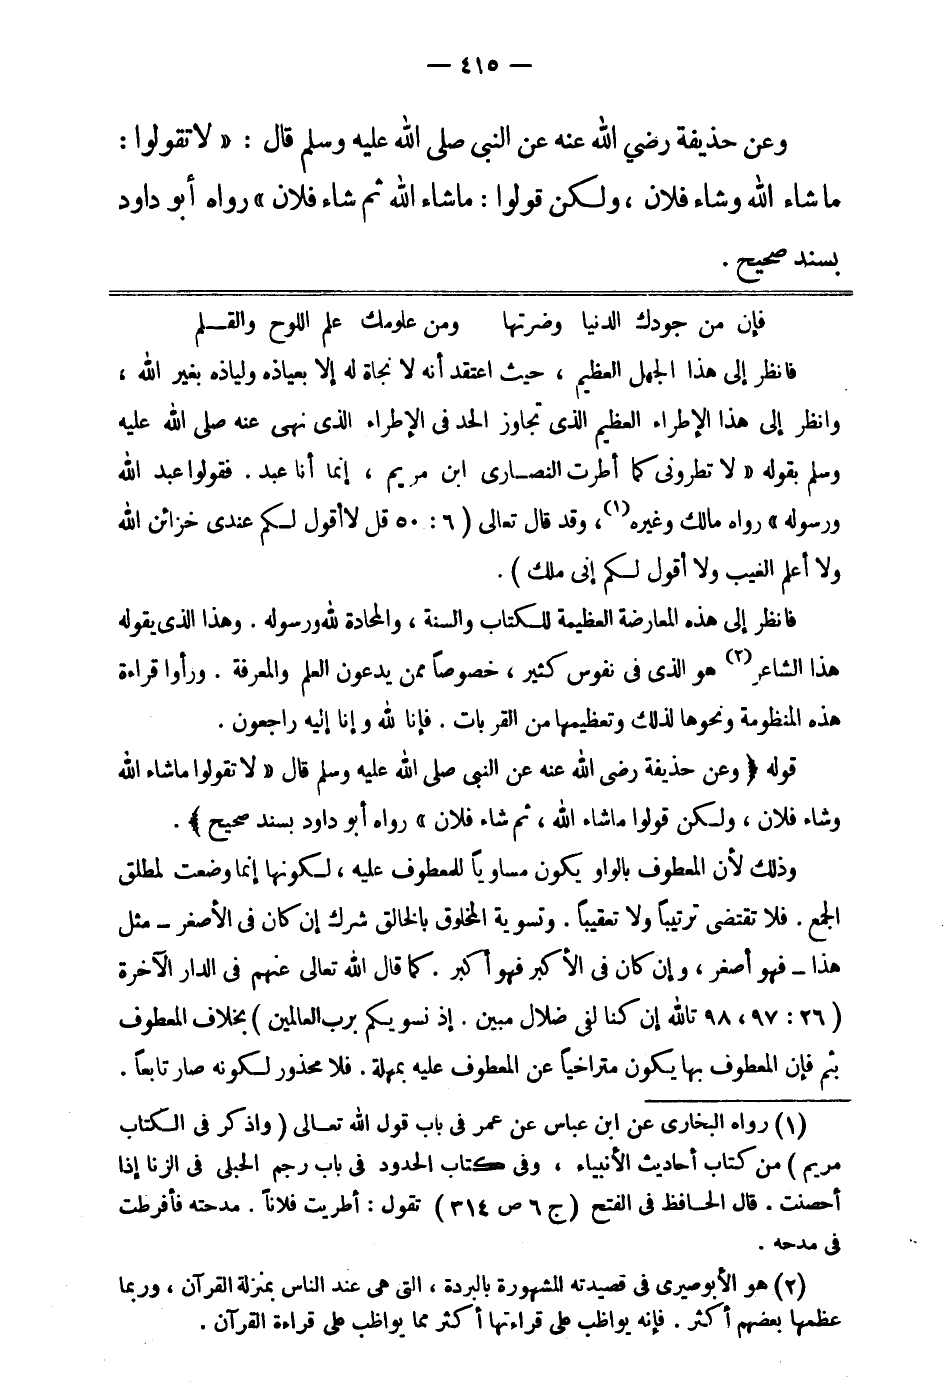 — ٤١٥ —
وعن حذيفة رضي الله عنه عن النبى صلى الله عليه وسلم قال : « لا تقولوا :
ما شاء الله وشاء فلان ، ولكن قولوا : ماشاء الله ثم شاء فلان » رواه أبو داود
بسند صحيح .
فإن من جودك الدنيا وضرتها ومن علومك علم اللوح والقلم
فانظر إلى هذا الجهل العظيم ، حيث اعتقد أنه لا نجاة له إلا بعياذه ولياذه بغير الله ،
وانظر إلى هذا الإطراء العظيم الذى تجاوز الحد فى الإطراء الذى نهى عنه صلى الله عليه
وسلم بقوله « لا تطرونى كما أطرت النصارى ابن مريم ، إنما أنا عبد . فقولوا عبد الله
ورسوله » رواه مالك وغيره (١) ، وقد قال تعالى ( ٦ : ٥٠ قل لاأقول لكم عندى خزائن الله
ولا أعلم الغيب ولا أقول لكم إنى ملك ) .
فانظر إلى هذه المعارضة العظيمة للكتاب والسنة ، والمحادة لله ورسوله . وهذا الذى يقوله
هذا الشاعر (٢) هو الذى فى نفوس كثير ، خصوصاً ممن يدعون العلم والمعرفة . ورأوا قراءة
هذه المنظومة ونحوها لذلك وتعظيمها من القربات . فإنا لله وإنا إليه راجعون .
قوله ﴿ وعن حذيفة رضى الله عنه عن النبى صلى الله عليه وسلم قال « لا تقولوا ماشاء الله
وشاء فلان ، ولكن قولوا ماشاء الله ، ثم شاء فلان » رواه أبو داود بسند صحيح ﴾ .
وذلك لأن المعطوف بالواو يكون مساوياً للمعطوف عليه ، لكونها إنما وضعت لمطلق
الجمع . فلا تقتضى ترتيباً ولا تعقيباً . وتسوية المخلوق بالخالق شرك إن كان فى الأصغر – مثل
هذا – فهو أصغر ، وإن كان فى الأكبر فهو أكبر . كما قال الله تعالى عنهم فى الدار الآخرة
( ٢٦ : ٩٧ ، ٩٨ تالله إن كنا لفى ضلال مبين . إذ نسويكم برب العالمين ) بخلاف المعطوف
بثم فإن المعطوف بها يكون متراخياً عن المعطوف عليه بمهلة . فلا محذور لكونه صار تابعاً .
(١) رواه البخارى عن ابن عباس عن عمر فى باب قول الله تعالى ( واذكر فى الكتاب
مريم ) من كتاب أحاديث الأنبياء ، وفى كتاب الحدود فى باب رجم الحبلى فى الزنا إذا
أحصنت . قال الحافظ فى الفتح ( ج ٦ ص ٣١٤ ) تقول : أطريت فلاناً . مدحته فأفرطت
فى مدحه .
(٢) هو الأبوصيرى فى قصيدته المشهورة بالبردة ، التى هى عند الناس بمنزلة القرآن ، وربما
عظمها بعضهم أكثر . فإنه يواظب على قراءتها أكثر مما يواظب على قراءة القرآن .